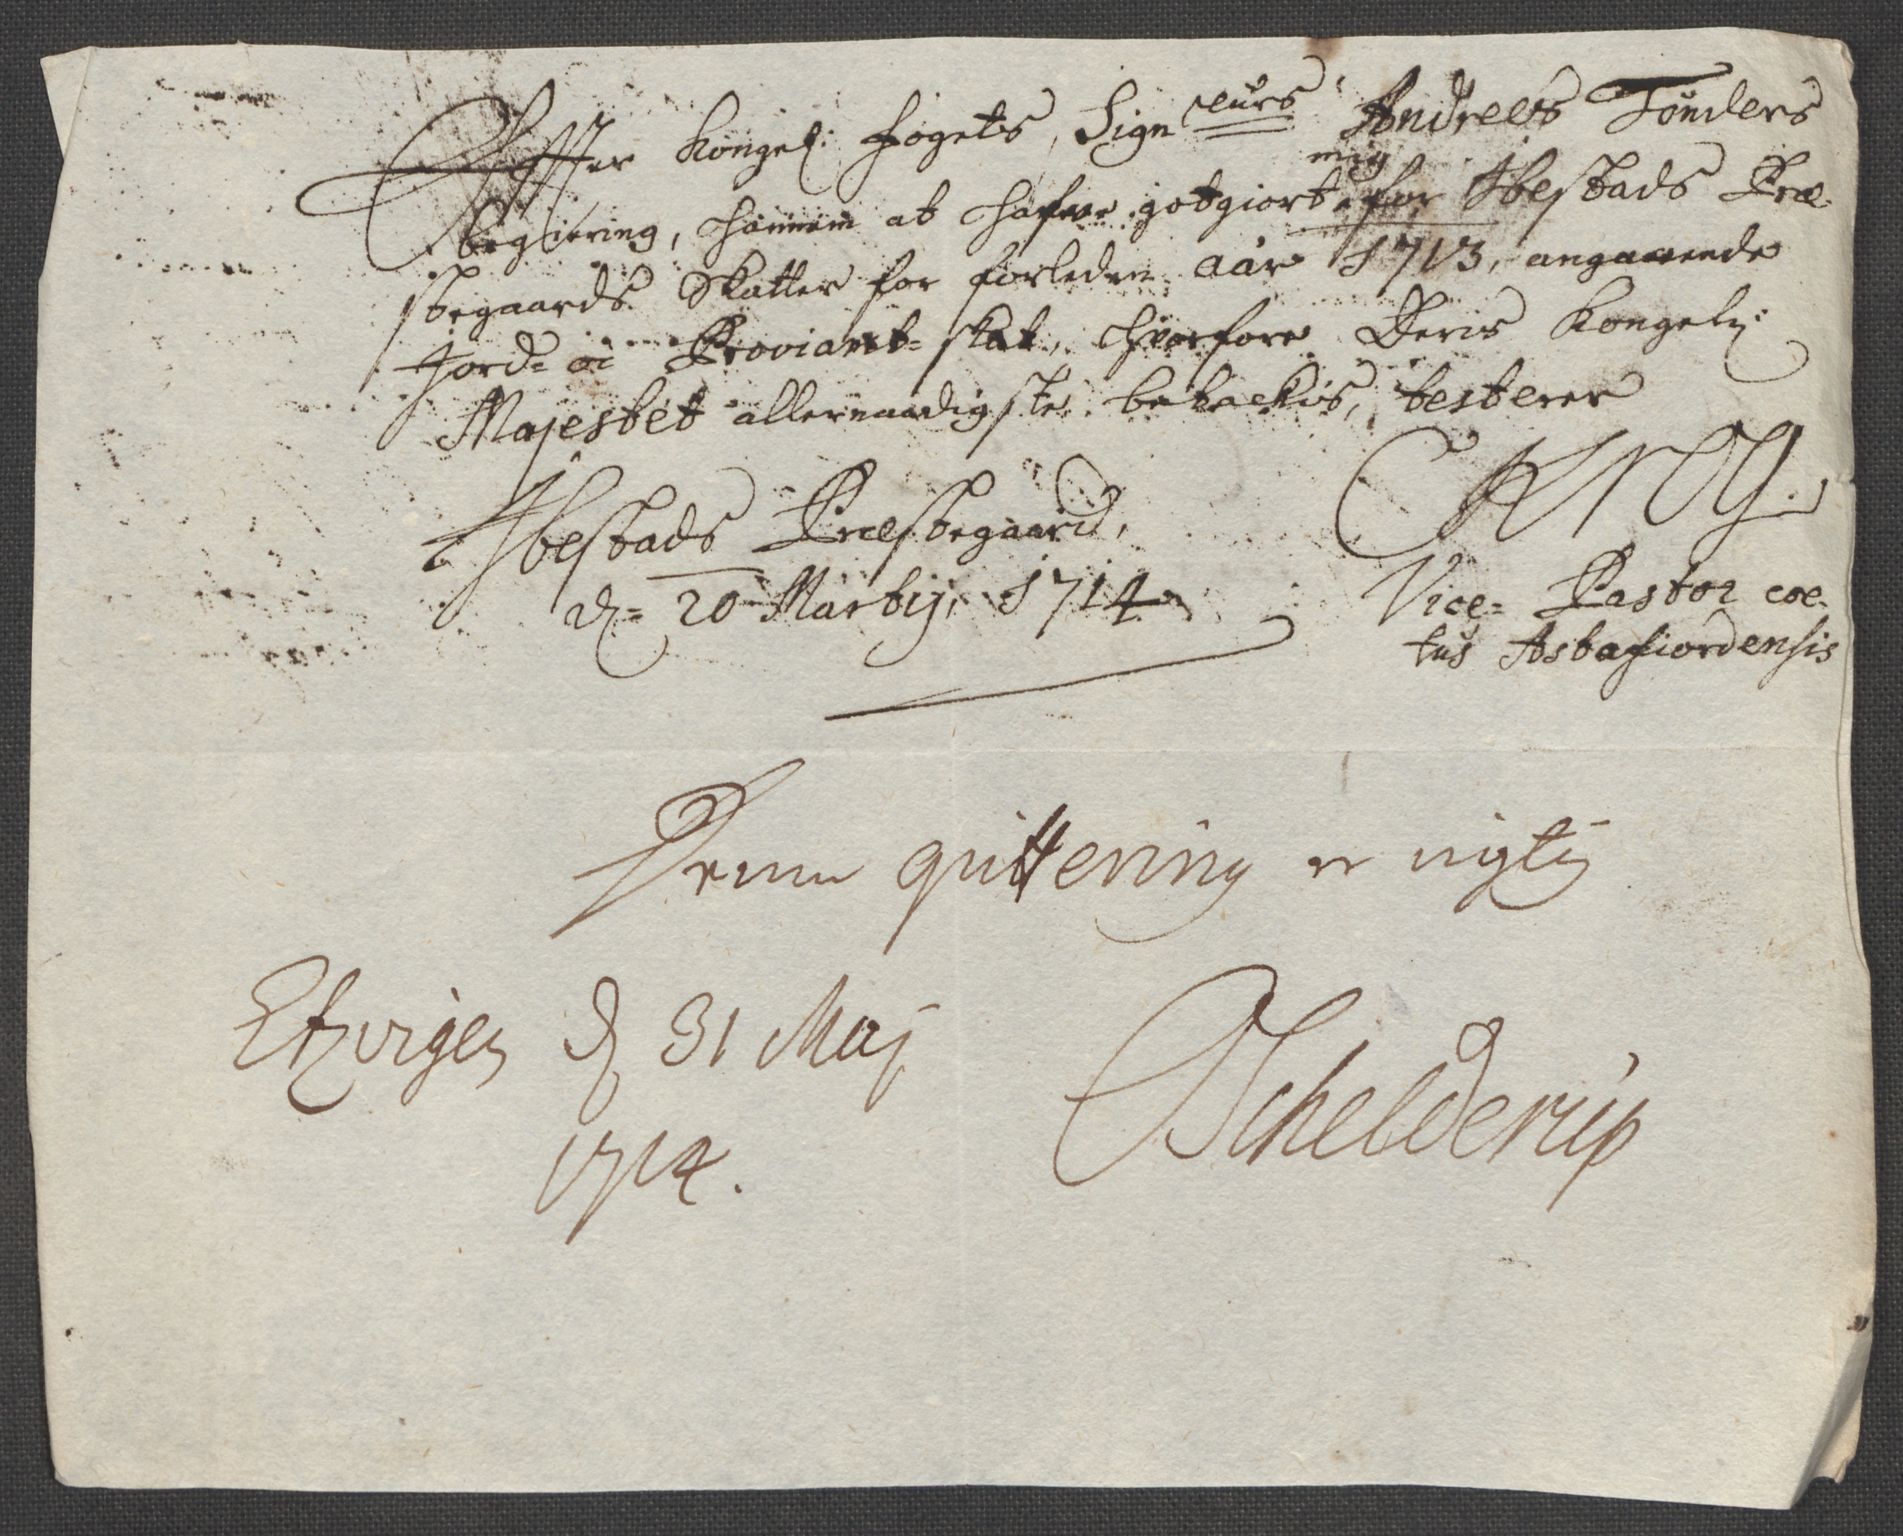 Effter Kongel: Fogets, Sign eurs Andrees Tønders
begiering, hannem at hafve gotgiort mig for Ibestads Præ-
stegaards Skatter for forleden aar 1713, angaaende
Jord- oc Proviant-skat, hvorfore Deris Kongely:
Majestet allernaadigste betackis, testerer
CKrog.
Ibestads Præstegaard,
d= 20 Martij, 1714
Vice= Pastor coe-
tus Astafiordensis
Denne quittering er rigtig
Elzvigen d 31 Maj
1714.
Schelderup